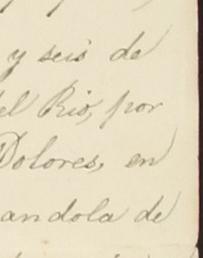 y seis de
el Rio, por
Dolores, en
andola de